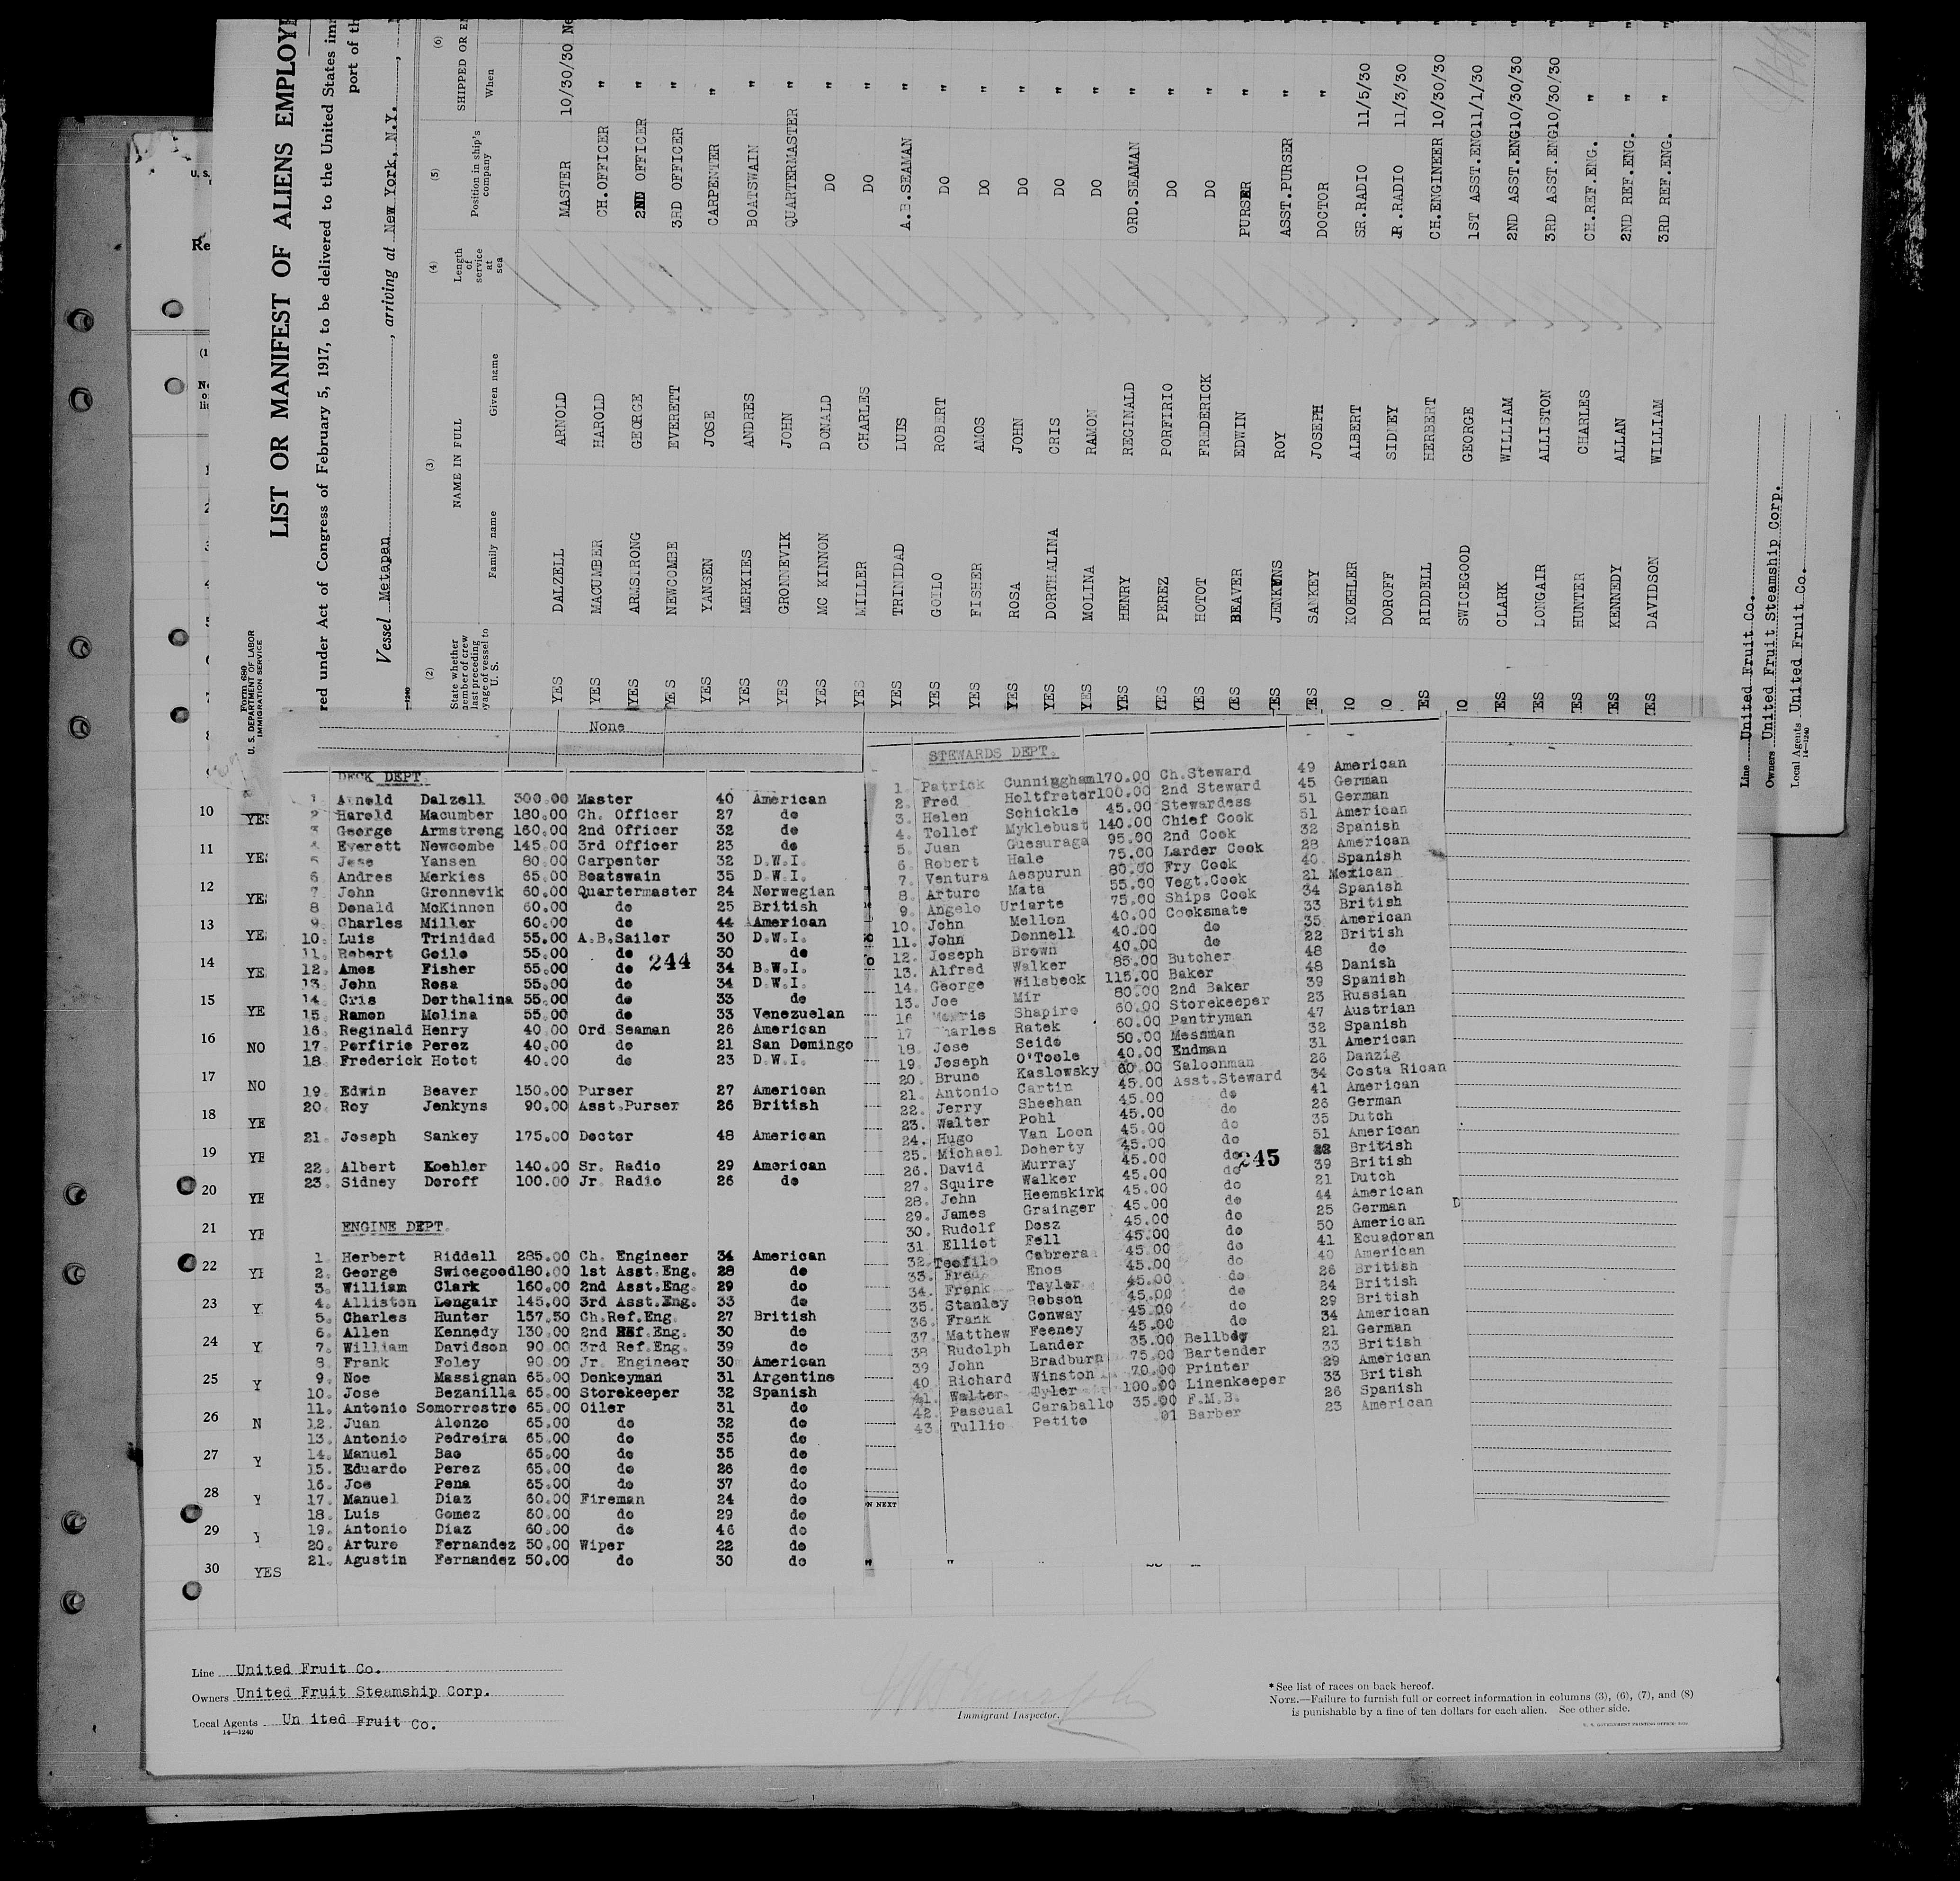 LIST OR MANIFEST OF ALIENS EMPLOYE
red under Act of Congress of February 5, 1917, to be delivered to the United States imm
port of th
Vessel Metapan, arriving at New York, N.Y.,
Form 680
U. S. DEPARTMENT OF LABOR
IMMIGRATION SERVICE
(2) (3) (4) (5) (6)
State whether member of crew last preceding voyage of vessel to U. S.
NAME IN FULL
Family name Given name
Length of service at sea
Position in ship's company
SHIPPED OR EN
When
YES DALZELL ARNOLD MASTER 10/30/30 Ne
YES MACUMBER HAROLD CH.OFFICER " "
YES ARMSTRONG GEORGE 2ND OFFICER " "
YES NEWCOMBE EVERETT 3RD OFFICER " "
YES YANSEN JOSE CARPENTER " "
YES MERKIES ANDRES BOATSWAIN " "
YES GRONNEVIK JOHN QUARTERMASTER " "
YES MC KINNON DONALD DO " "
YES MILLER CHARLES DO " "
YES TRINIDAD LUIS A.B.SEAMAN " "
YES GOILO ROBERT DO " "
YES FISHER AMOS DO " "
YES ROSA JOHN DO " "
YES DORTHALINA CRIS DO " "
YES MOLINA RAMON DO " "
YES HENRY REGINALD ORD.SEAMAN " "
YES PEREZ PORFIRIO DO " "
YES HOTOT FREDERICK DO " "
YES BEAVER EDWIN PURSER " "
YES JENKYNS ROY ASST.PURSER " "
YES SANKEY JOSEPH DOCTOR " "
IO KOEHLER ALBERT SR.RADIO 11/5/30 "
IO DOROFF SIDNEY JR.RADIO 11/3/30 "
ES RIDDELL HERBERT CH.ENGINEER 10/30/30 "
IO SWICEGOOD GEORGE 1ST ASST.ENG11/1/30 "
ES CLARK WILLIAM 2ND ASST.ENG10/30/30 "
ES LONGAIR ALLISTON 3RD ASST.ENG10/30/30 "
ES HUNTER CHARLES CH.REF.ENG. " "
ES KENNEDY ALLAN 2ND REF.ENG. " "
ES DAVIDSON WILLIAM 3RD REF.ENG. " "
Line United Fruit Co.
Owners United Fruit Steamship Corp.
Local Agents United Fruit Co.
14—1240
None
DECK DEPT.
1 Arnold Dalzell 300.00 Master 40 American
2 Harold Macumber 180.00 Ch. Officer 27 do
3 George Armstrong 160.00 2nd Officer 32 do
4 Everett Newcombe 145.00 3rd Officer 23 do
5 Jose Yansen 80.00 Carpenter 32 D.W.I.
6 Andres Merkies 65.00 Boatswain 35 D.W.I.
7 John Gronnevik 60.00 Quartermaster 24 Norwegian
8 Donald McKinnon 60.00 do 25 British
9. Charles Miller 60.00 do 44 American
10. Luis Trinidad 55.00 A.B.Sailor 30 D.W.I.
11. Robert Goilo 55.00 do 30 do
244
12. Amos Fisher 55.00 do 34 B.W.I.
13. John Rosa 55.00 do 34 D.W.I.
14. Cris Dorthalina 55.00 do 33 do
15. Ramon Molina 55.00 do 33 Venezuelan
16. Reginald Henry 40.00 Ord Seaman 26 American
17. Porfirio Perez 40.00 do 21 San Domingo
18. Frederick Hotot 40.00 do 23 D.W.I.
19. Edwin Beaver 150.00 Purser 27 American
20. Roy Jenkyns 90.00 Asst.Purser 26 British
21. Joseph Sankey 175.00 Doctor 48 American
22. Albert Koehler 140.00 Sr. Radio 29 American
23. Sidney Doroff 100.00 Jr. Radio 26 do
ENGINE DEPT.
1. Herbert Riddell 285.00 Ch. Engineer 34 American
2. George Swicegood180.00 1st Asst.Eng. 28 do
3. William Clark 160.00 2nd Asst.Eng. 29 do
4. Alliston Longair 145.00 3rd Asst.Eng. 33 do
5. Charles Hunter 157.50 Ch.Ref.Eng. 27 British
6. Allen Kennedy 130.00 2nd Ref.Eng. 30 do
7. William Davidson 90.00 3rd Ref.Eng. 39 do
8. Frank Foley 90.00 Jr. Engineer 30 American
9. Noe Massignan 65.00 Donkeyman 31 Argentine
10. Jose Bezanilla 65.00 Storekeeper 32 Spanish
11. Antonio Somorrostro 65.00 Oiler 31 do
12. Juan Alonzo 65.00 do 32 do
13. Antonio Pedreira 65.00 do 35 do
14. Manuel Bao 65.00 do 35 do
15. Eduardo Perez 65.00 do 26 do
16. Joe Pena 65.00 do 37 do
17. Manuel Diaz 60.00 Fireman 24 do
18. Luis Gomez 60.00 do 29 do
19. Antonio Diaz 60.00 do 46 do
20. Arturo Fernandez 50.00 Wiper 22 do
21. Agustin Fernandez 50.00 do 30 do
STEWARDS DEPT.
1. Patrick Cunningham170.00 Ch.Steward 49 American
2. Fred Holtfreter100.00 2nd Steward 45 German
3. Helen Schickle 45.00 Stewardess 51 German
4. Tollef Myklebust 140.00 Chief Cook 51 American
5. Juan Guesuraga 95.00 2nd Cook 32 Spanish
6. Robert Hale 75.00 Larder Cook 28 American
7. Ventura Aespurun 80.00 Fry Cook 40 Spanish
8. Arturo Mata 55.00 Vegt.Cook 21 Mexican
9. Angelo Uriarte 75.00 Ships Cook 34 Spanish
10. John Mellon 40.00 Cooksmate 33 British
11. John Donnell 40.00 do 35 American
12. Joseph Brown 40.00 do 22 British
13. Alfred Walker 85.00 Butcher 48 do
14. George Wilsbeck 115.00 Baker 48 Danish
15. Joe Mir 80.00 2nd Baker 39 Spanish
16 Morris Shapiro 60.00 Storekeeper 23 Russian
17 harles Ratek 60.00 Pantryman 47 Austrian
18. Jose Seido 50.00 Messman 32 Spanish
19. Joseph O'Toole 40.00 Endman 31 American
20. Bruno Kaslowsky 60.00 Saloonman 26 Danzig
21. Antonio Cartin 45.00 Asst.Steward 34 Costa Rican
22. Jerry Sheehan 45.00 do 41 American
23. Walter Pohl 45.00 do 26 German
24. Hugo Van Loon 45.00 do 35 Dutch
25. Michael Doherty 45.00 do 51 American
245
26. David Murray 45.00 do British
27. Squire Walker 45.00 do 39 British
28. John Heemskirk 45.00 do 21 Dutch
29. James Grainger 45.00 do 44 American
30. Rudolf Dosz 45.00 do 25 German
31 Elliot Fell 45.00 do 50 American
32. Teofilo Cabrera 45.00 do 41 Ecuadoran
33. Fred Enos 45.00 do 40 American
34. Frank Taylor 45.00 do 26 British
35. Stanley Robson 45.00 do 24 British
36. Frank Conway 45.00 do 29 British
37. Matthew Feeney 45.00 do 34 American
38 Rudolph Lander 35.00 Bellboy 21 German
39 John Bradburn 75.00 Bartender 33 British
40. Richard Winston 70.00 Printer 29 American
41. Walter Tyler 100.00 Linenkeeper 33 British
42. Pascual Caraballo 35.00 F.M.B. 26 Spanish
43. Tullio Petito 01 Barber 23 American
10 YES
11 YES
12 YES
13 YES
14 YE
15 YE
16 NO
17 NO
18 YE
19 YE
20 YE
21 YE
22 YE
23 Y
24 Y
25 Y
26 N
27 Y
28 Y
29 Y
30 YES
ON NEXT
Line United Fruit Co.
Owners United Fruit Steamship Corp.
Local Agents Un ited Fruit Co.
14—1240
Immigrant Inspector.
* See list of races on back hereof.
NOTE.—Failure to furnish full or correct information in columns (3), (6), (7), and (8)
is punishable by a fine of ten dollars for each alien. See other side.